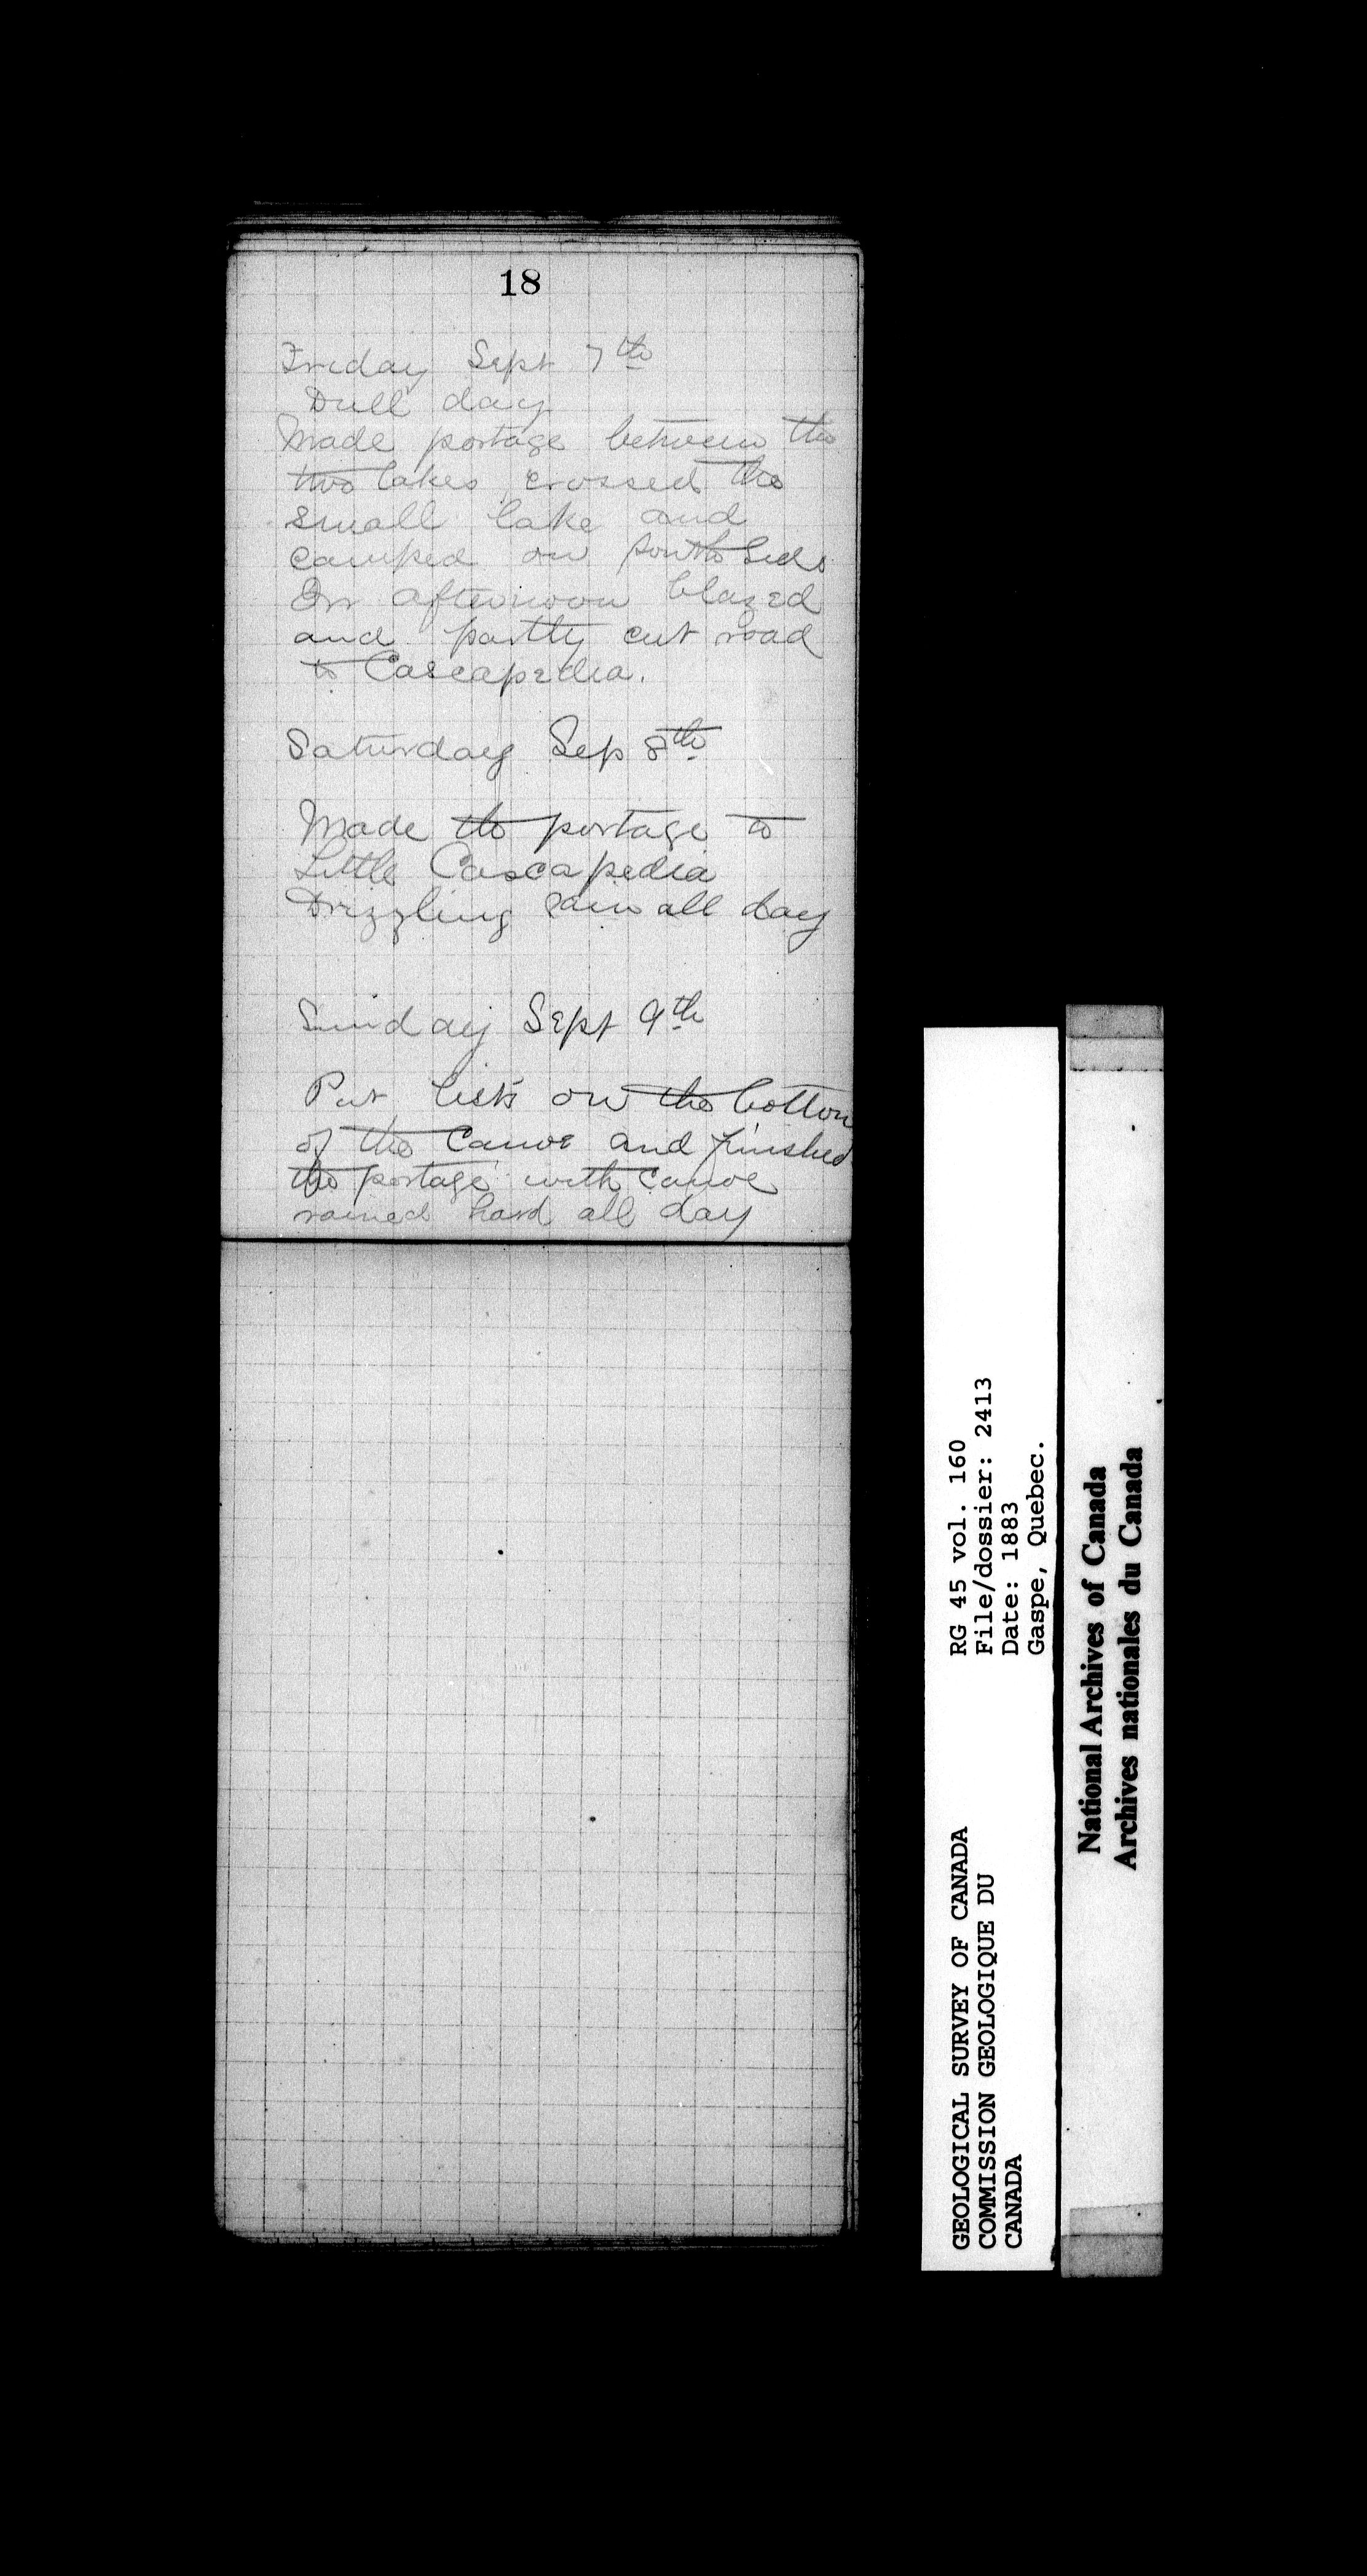 18
Friday Sept 7th
Dull day
Made portage between the
two lakes crossed the
small lake and
camped on south side
In afternoon blazed
and partly cut road
to Cascapedia.
Saturday Sep 8th
Made the portage to
Little Cascapedia
Drizzling rain all day
Sunday Sept 9th
Put on the bottom
of the canoe and finished
the portage with canoe
rained hard all day
RG 45 vol. 160
File/dossier: 2413
Date: 1883
Gaspe, Quebec.
GEOLOGICAL SURVEY OF CANADA
COMMISSION GEOLOGIQUE DU
CANADA
National Archives of Canada
Archives nationales du Canada